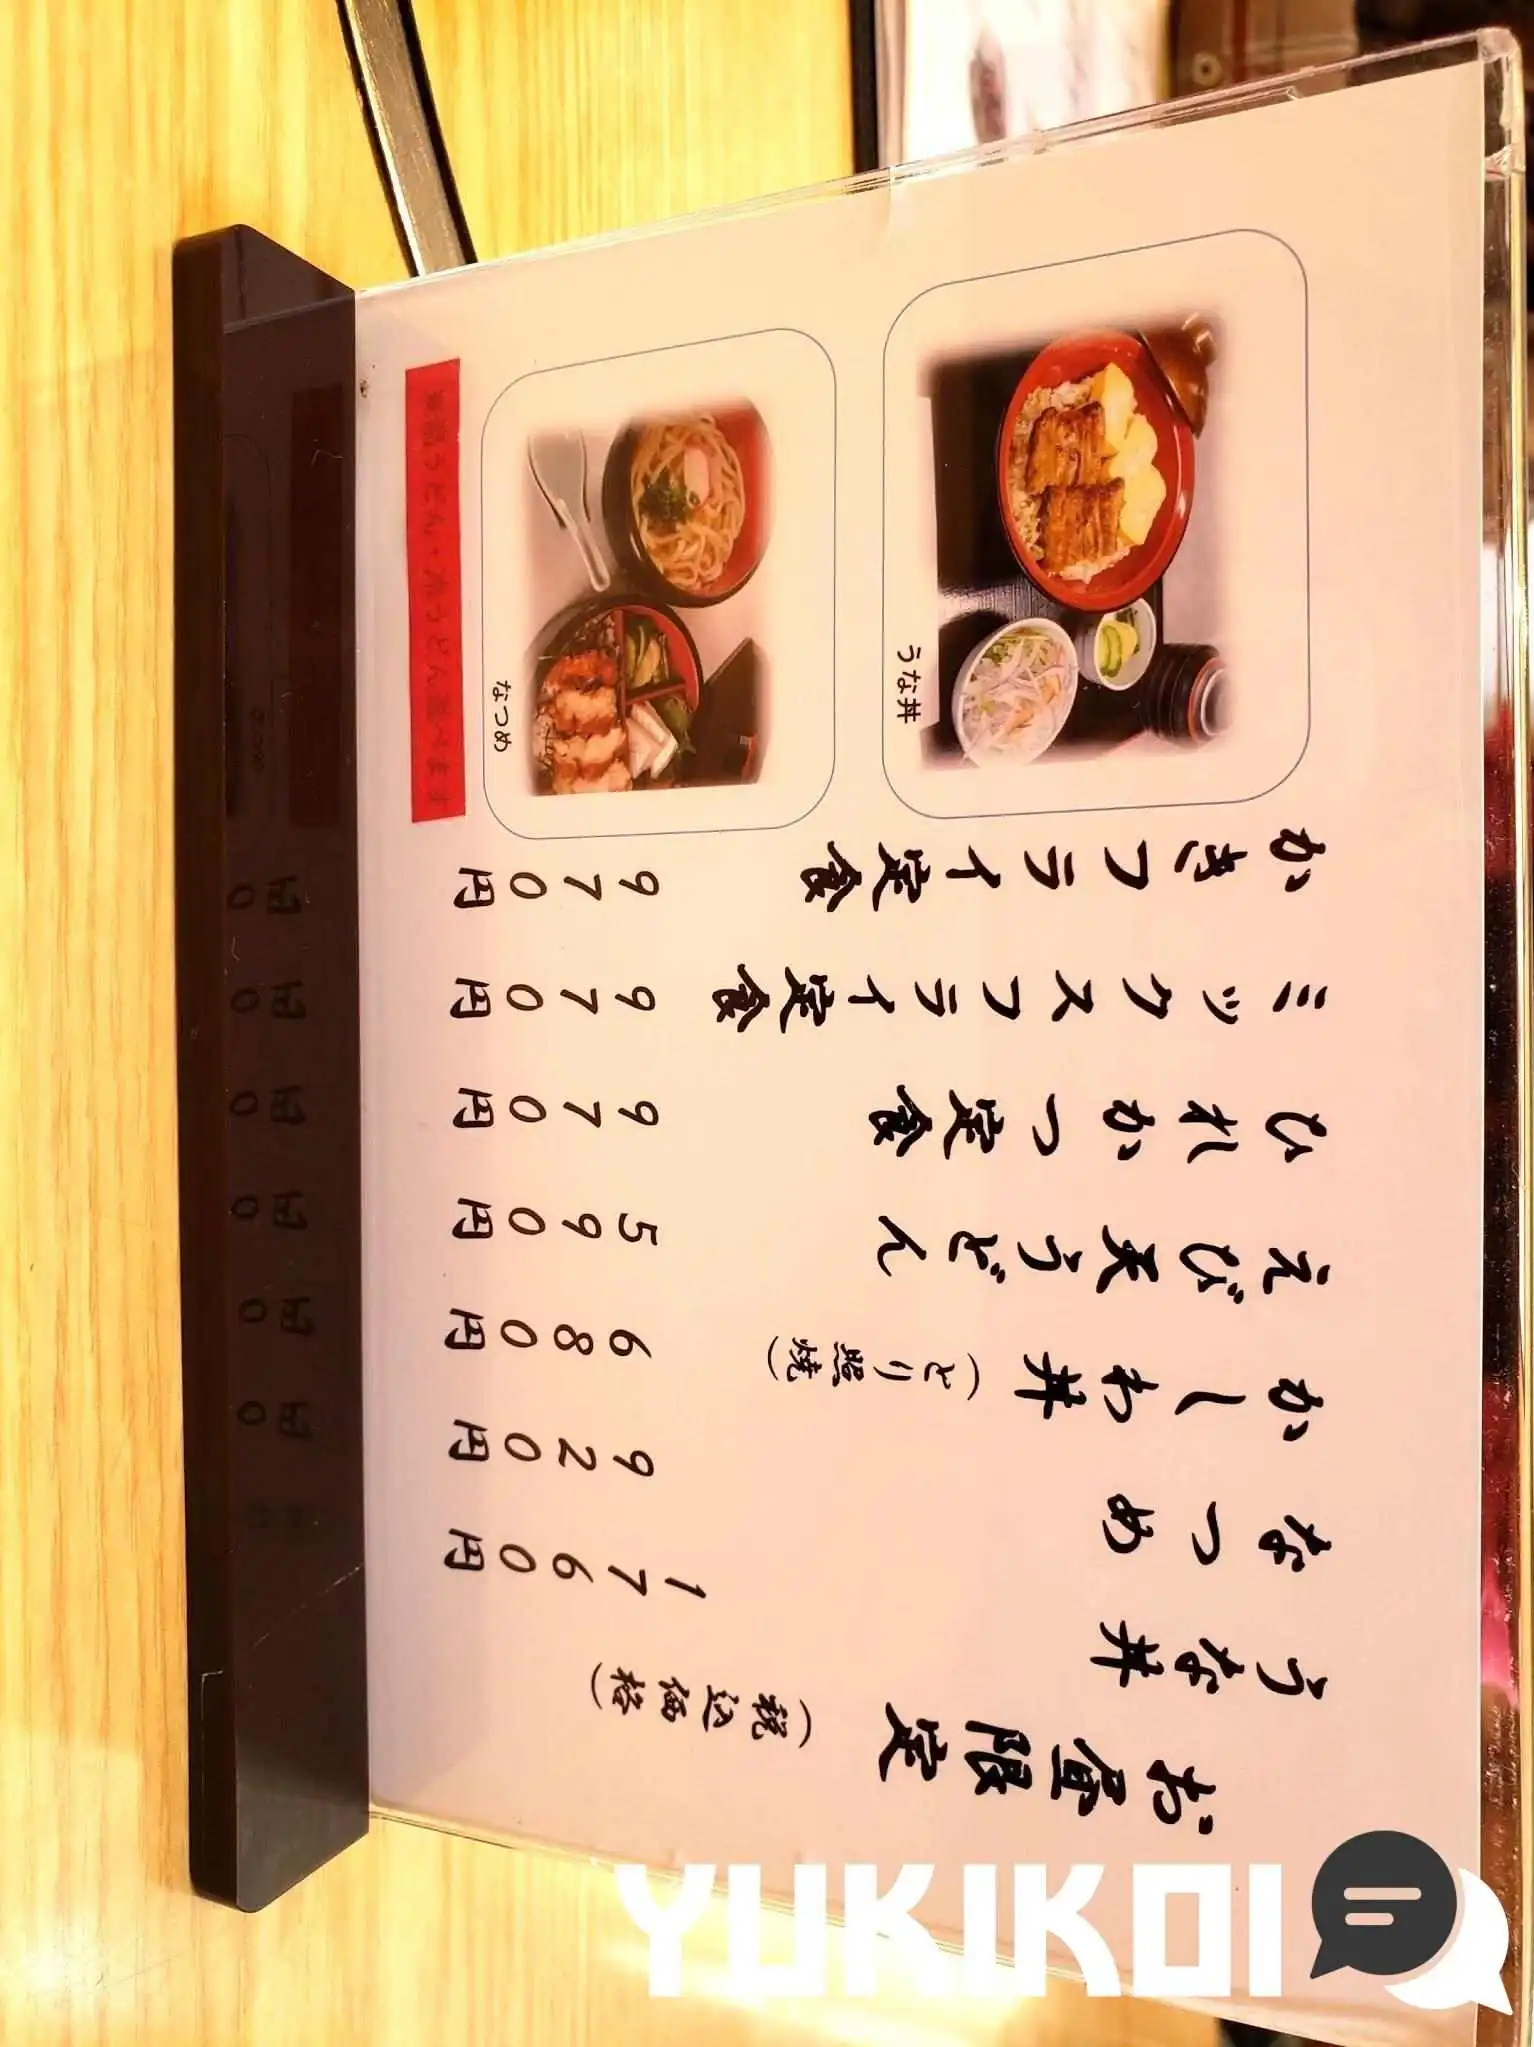 お昼限定
(税込価格)
うな丼 1760円
なつめ 920円
かしわ丼(とり照焼) 680円
えび天うどん 590円
ひれかつ定食 970円
ミックスフライ定食 970円
かきフライ定食 970円
うな丼
なつめ
※温うどん・冷うどん選べます
YUKIKOI